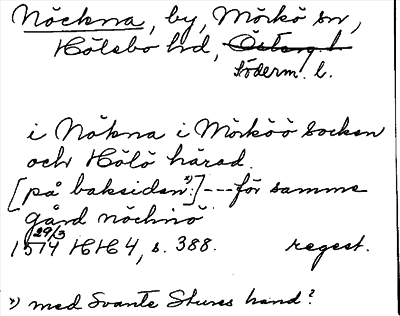 Nöckna, by, Mörkö sn,
Hölebo hd, Österg. l
Söderm. l.
i Nökna i Mörköö socken
och Hölö härad.
[på baksidan:²⁾] --- för samma
gård nöchnö
29/3
1574 HH4, s. 388. regest.
²⁾ med Svante Stures hand?